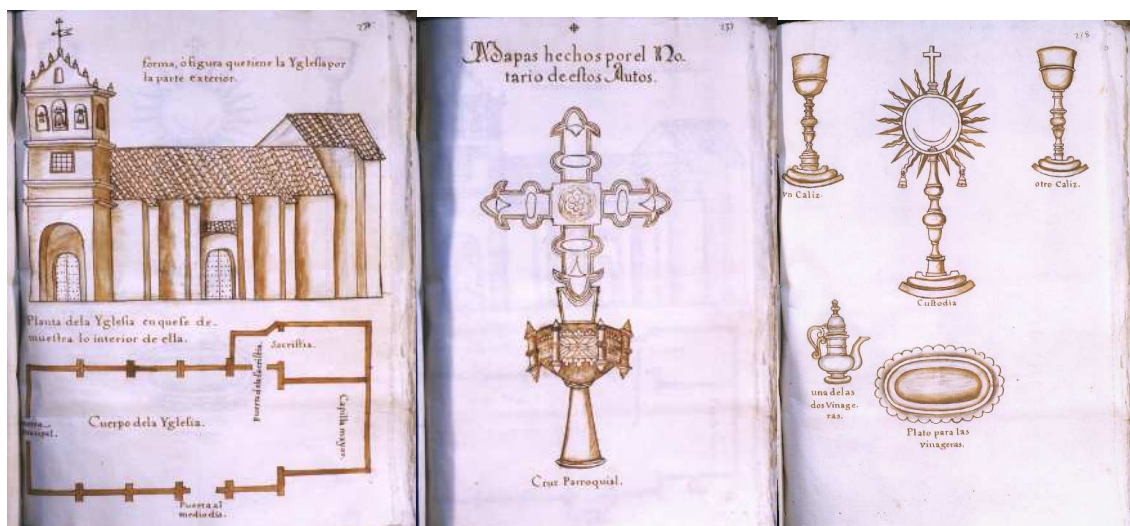 forma, ò figura que tiene la Yglesia por
la parte exterior.
Planta dela Yglesia en que se de-
muestra lo interior de ella.
Sacristia.
Puerta de la Sacristia.
Cuerpo dela Yglesia.
Capilla mayor.
Puerta al
medio dia.
237
Mapas hechos por el No-
tario de estos Autos.
Cruz Parroquial.
238
ro Caliz.
otro Caliz.
Custodia
una delas
dos Vinage-
ras.
Plato para las
vinageras.